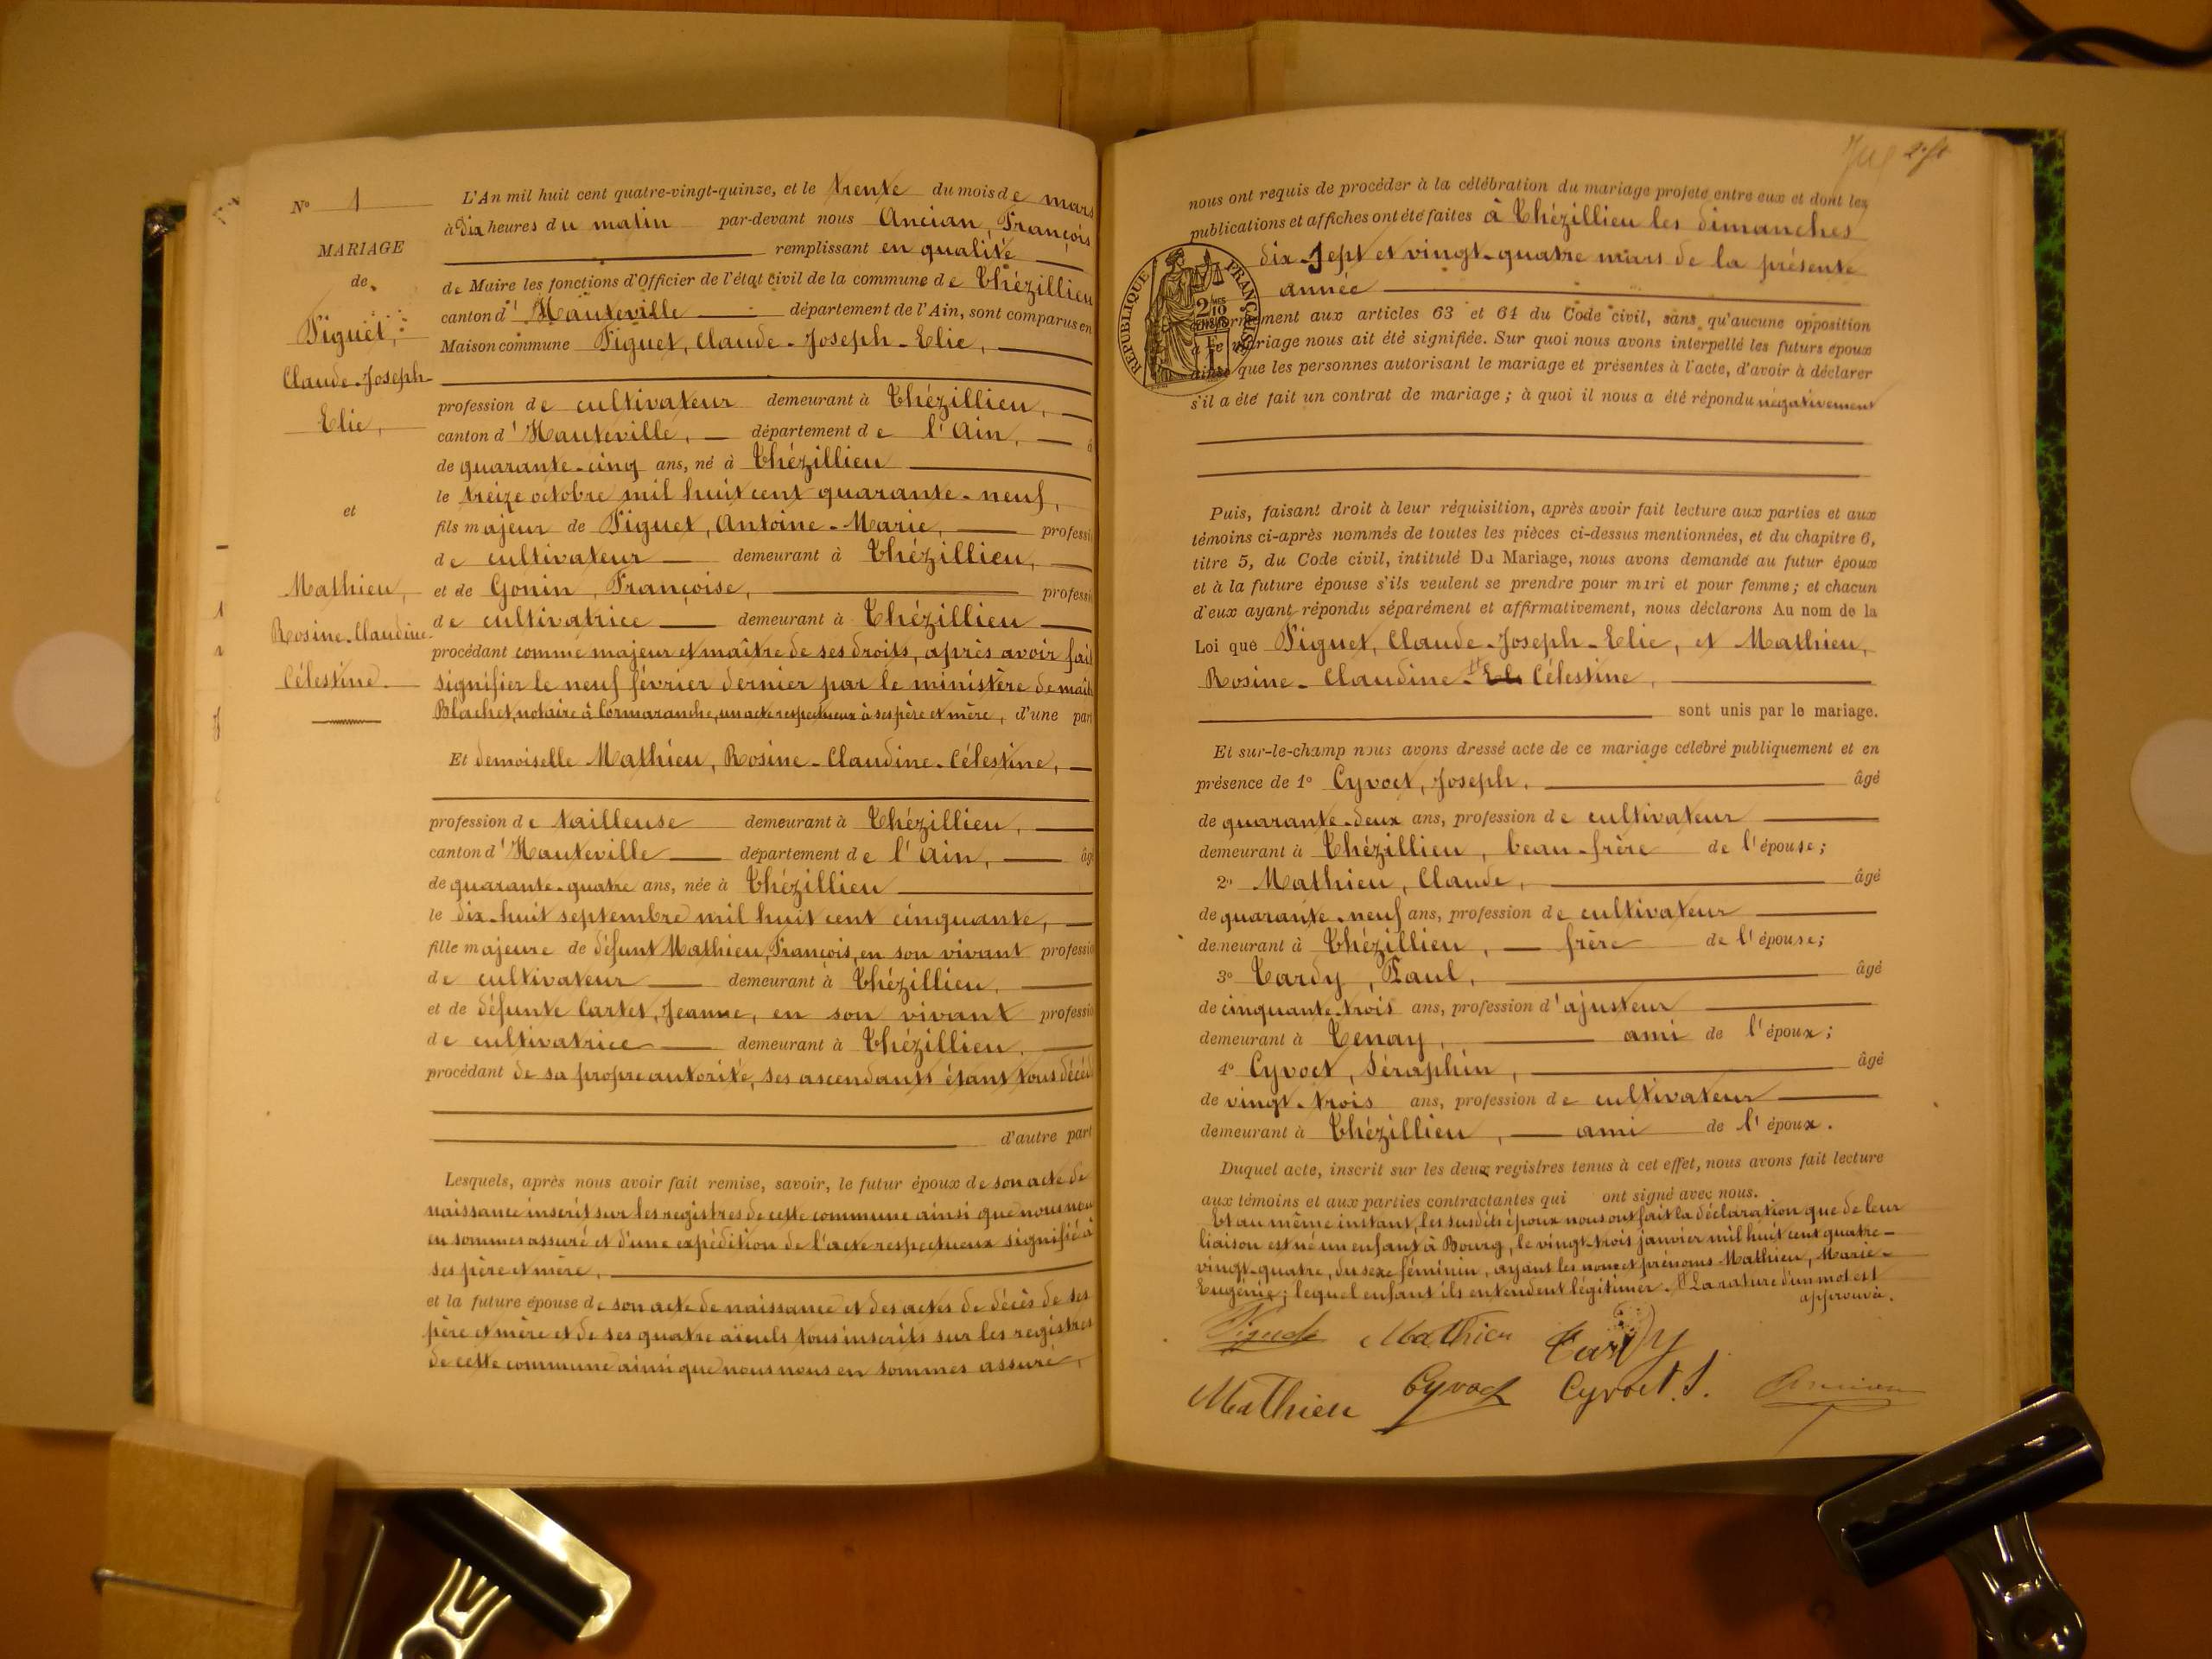 N° 1
MARIAGE
de
Figuet,
Claude-Joseph-
Elie,
et
Mathieu,
Rosine-Claudine-
Célestine
L'An mil huit cent quatre-vingt-quinze, et le trente du mois de mars
à dix heures du matin par-devant nous Ancian, François
remplissant en qualité
de Maire les fonctions d'Officier de l'état civil de la commune de Thézillieu
canton d'Hauteville département de l'Ain, sont comparus en
Maison commune Figuet, Claude-Joseph-Elie,
profession de cultivateur demeurant à Thézillieu,
canton d'Hauteville, département de l'Ain,
de quarante-cinq ans, né à Thézillieu
le treize octobre mil huit cent quarante-neuf,
fils majeur de Figuet, Antoine-Marie, professi
de cultivateur demeurant à Thézillieu,
et de Gonin, Françoise, professi
de cultivatrice demeurant à Thézillieu
procédant comme majeur et maître de ses droits, après avoir fait
signifier le neuf février dernier par le ministère de maît
Blachet, notaire à Cormaranche, un acte respectueux à ses père et mère, d'une part
Et demoiselle Mathieu, Rosine-Claudine-Célestine,
profession de tailleuse demeurant à Thézillieu,
canton d'Hauteville département de l'Ain, âg
de quarante-quatre ans, née à Thézillieu
le dix-huit septembre mil huit cent cinquante,
fille majeure de défunt Mathieu, François, en son vivant professio
de cultivateur demeurant à Thézillieu,
et de défunte Cartet, Jeanne, en son vivant professio
de cultivatrice demeurant à Thézillieu,
procédant de sa propre autorité, ses ascendants étant tous décéd
d'autre part
Lesquels, après nous avoir fait remise, savoir, le futur époux de son acte de
naissance inscrit sur les registres de cette commune ainsi que nous nous
en sommes assuré et d'une expédition de l'acte respectueux signifié à
ses père et mère,
et la future épouse de son acte de naissance et des actes de décès de ses
père et mère et de ses quatre aïeuls tous inscrits sur les registres
de cette commune ainsi que nous nous en sommes assuré,
nous ont requis de procéder à la célébration du mariage projeté entre eux et dont les
publications et affiches ont été faites à Thézillieu les dimanches
dix-sept et vingt-quatre mars de la présente
année
REPUBLIQUE FRANÇAISE
conformément aux articles 63 et 64 du Code civil, sans qu'aucune opposition
à ce mariage nous ait été signifiée. Sur quoi nous avons interpellé les futurs époux
ainsi que les personnes autorisant le mariage et présentes à l'acte, d'avoir à déclarer
s'il a été fait un contrat de mariage ; à quoi il nous a été répondu négativement
Puis, faisant droit à leur réquisition, après avoir fait lecture aux parties et aux
témoins ci-après nommés de toutes les pièces ci-dessus mentionnées, et du chapitre 6,
titre 5, du Code civil, intitulé Du Mariage, nous avons demandé au futur époux
et à la future épouse s'ils veulent se prendre pour mari et pour femme ; et chacun
d'eux ayant répondu séparément et affirmativement, nous déclarons Au nom de la
Loi que Figuet, Claude-Joseph-Elie, et Mathieu,
Rosine-Claudine- Célestine,
sont unis par le mariage.
Et sur-le-champ nous avons dressé acte de ce mariage célébré publiquement et en
présence de 1° Cyvoct, Joseph, âgé
de quarante-deux ans, profession de cultivateur
demeurant à Thézillieu, beau-frère de l'épouse ;
2° Mathieu, Claude, âgé
de quarante-neuf ans, profession de cultivateur
demeurant à Thézillieu, frère de l'épouse ;
3° Tardy, Paul, âgé
de cinquante-trois ans, profession d'ajusteur
demeurant à Tenay, ami de l'époux ;
4° Cyvoct, Séraphin, âgé
de vingt-trois ans, profession de cultivateur
demeurant à Thézillieu, ami de l'époux.
Duquel acte, inscrit sur les deux registres tenus à cet effet, nous avons fait lecture
aux témoins et aux parties contractantes qui ont signé avec nous.
Et au même instant, les susdits époux nous ont fait la déclaration que de leur
liaison est né un enfant à Bourg, le vingt-trois janvier mil huit cent quatre-
vingt-quatre, du sexe féminin, ayant les nom et prénoms Mathieu, Marie-
Eugénie ; lequel enfant ils entendent légitimer. # La rature d'un mot est
approuvée.
Figuet Mathieu Tardy
Mathieu Cyvoct Cyvoct. S. Ancian